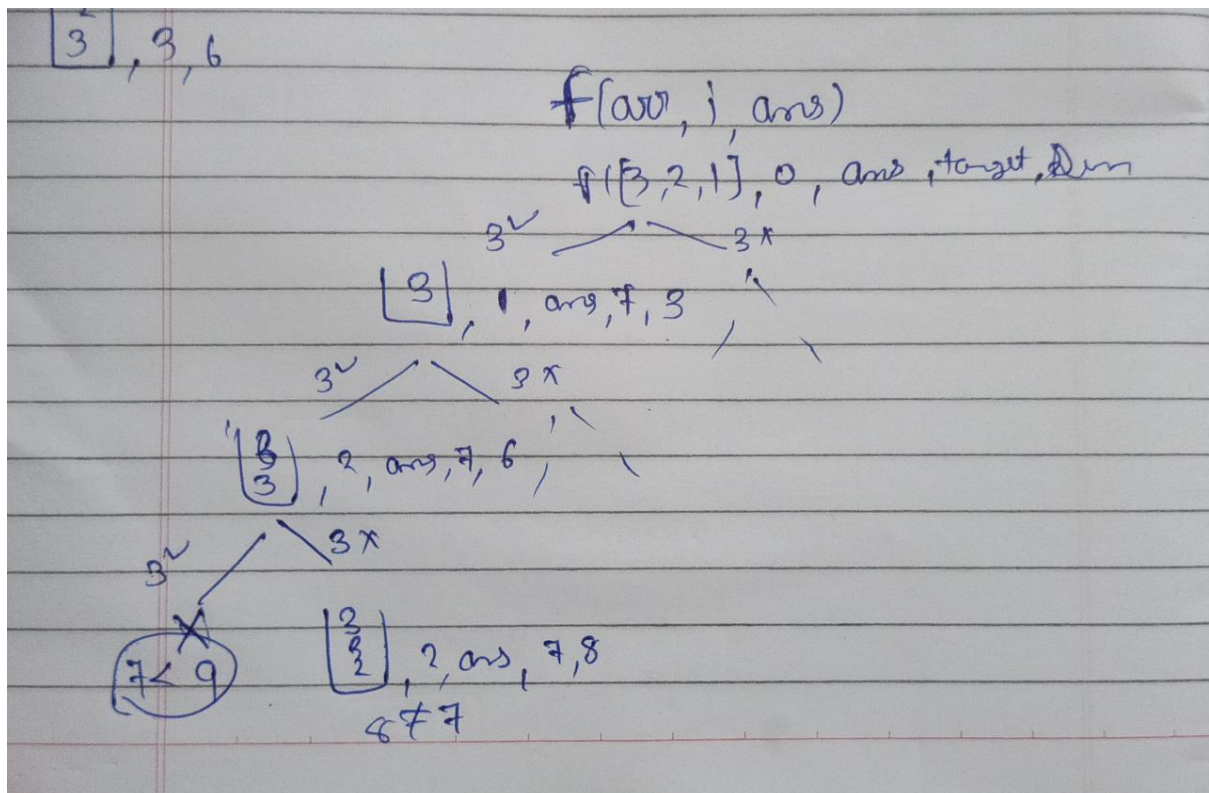 3 , 3, 6
f(arr, i, ans)
f([3,2,1], 0, ans, target, Sum
3✓ 3x
3 , 1, ans, 7, 3
3✓ 3x
3 3 , 2, ans, 7, 6
3✓ 3x
7 < 9
3 3 2 , 2, ans, 7, 8
8 ≠ 7